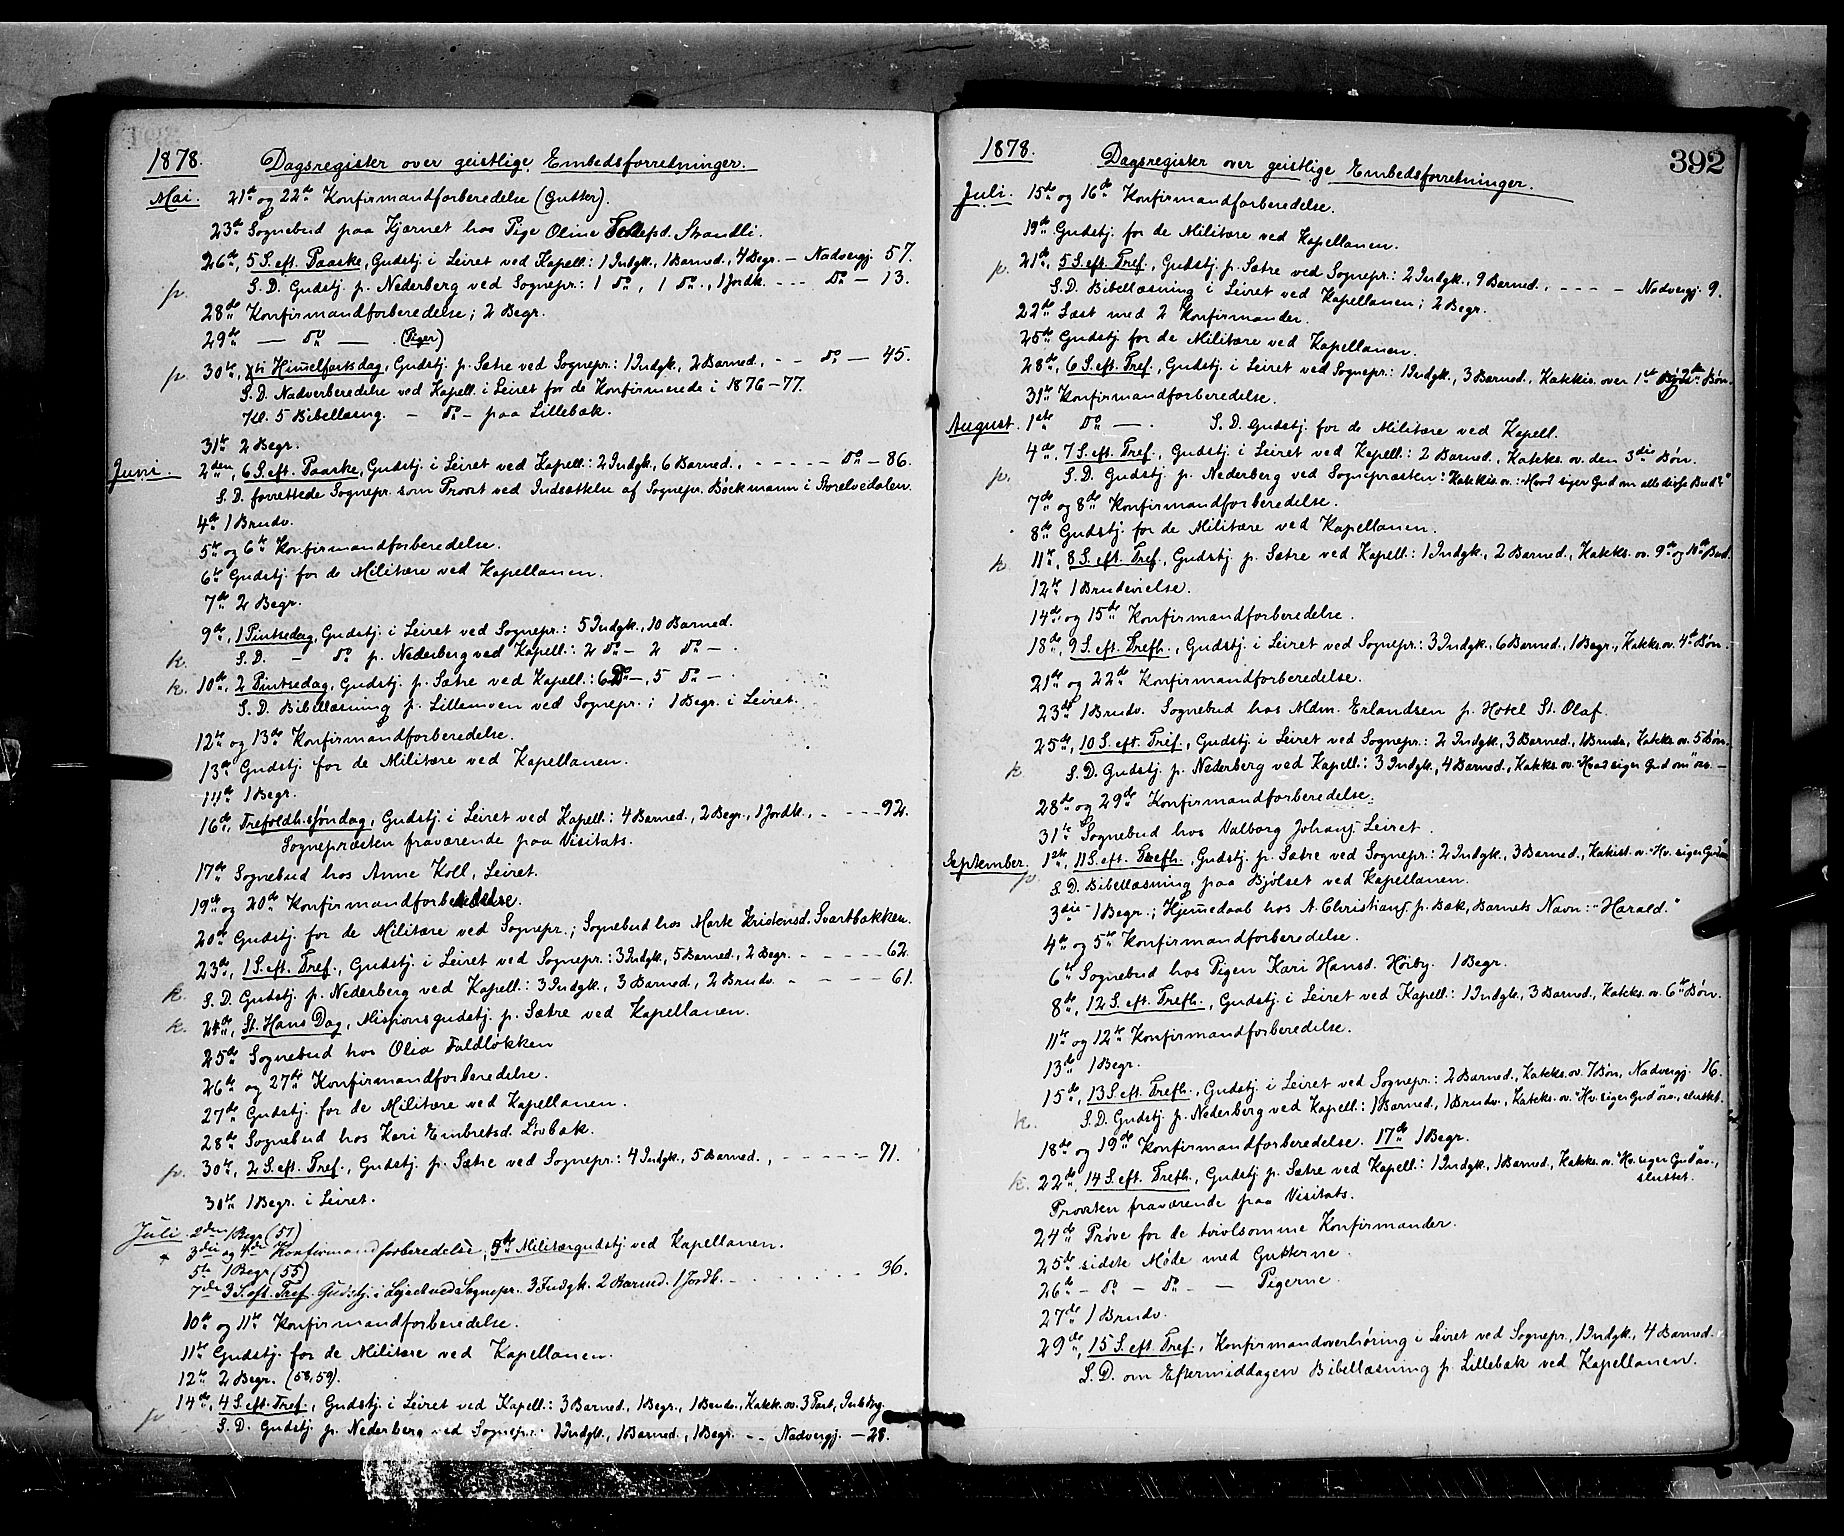 1878. Dagsregister over geistlige Embedsforretninger.
Mai. 21de og 22de Konfirmandforberedelse (Gutter).
23de Sognebud paa Kjærnet hos Pige Oline Tollefsd. Strandli.
26de, 5 S. eft. Paaske, Gudstj. i Leiret ved Kapell.: 1 Indgk., 1 Barned., 4 Begr. – Nadvergj. 57.
p. S. D. Gudstj. p. Nederberg ved Sognepr.: 1 do, 1 do, 1 Jordk. - - - do – 13.
28de Konfirmandforberedelse; 2 Begr.
29de — do — (Piger)
p. 30te, Kri Himelfartsdag, Gudstj. p. Sætre ved Sognepr.: 1 Indgk., 2 Barned., - - do – 45.
S. D. Nadverberedelse ved Kapell. i Leiret for de Konfirmerede i 1876–77.
Kl. 5 Bibellæsng. – do – paa Lillebak.
31te 2 Begr.
Juni. 2den, 6 S. eft. Paaske, Gudstj. i Leiret ved Kapell.: 2 Indgk., 6 Barned., - - - - - do – 86.
S. D. forrettede Sognepr. som Provst ved Indsættelse af Sognepr. Böckmann i Storelvedalen.
4de 1 Brudv.
5te og 6te Konfirmandforberedelse.
6te Gudstj. for de Militære ved Kapellanen.
7de 2 Begr.
9de, 1 Pintsedag, Gudstj. i Leiret ved Sognepr.: 5 Indgk., 10 Barned.
k. S. D. – do p. Nederberg ved Kapell.: 2 do – 2 do – .
k. 10de, 2 Pintsedag, Gudstj. p. Sætre ved Kapell.: 6 do –, 5 do – .
S. D. Bibellæsning p. Lillemoen ved Sognepr.; 1 Begr. i Leiret.
12te og 13de Konfirmandforberedelse.
13de Gudstj. for de Militære ved Kapellanen.
14de 1 Begr.
16de, Trefoldh.søndag, Gudstj. i Leiret ved Kapell.: 4 Barned., 2 Begr., 1 Jordk., - - - - 92.
Sognepræsten fraværende paa Visitats.
17de Sognebud hos Anne Koll, Leiret.
19de og 20de Konfirmandforberedelse.
20de Gudstj. for de Militære ved Sognepr.; Sognebud hos Marte Kristensd. Svartbakken.
23de, 1 S. eft. Tref., Gudstj. i Leiret ved Sognepr.: 3 Indgk., 5 Barned., 2 Begr. - - - - - - 62
k. S. D. Gudstj. p. Nederberg ved Kapell.: 3 Indgk., 3 Barned., 2 Brudv. - - - - 61.
k. 24de, St. Hans Dag, Missionsgudstj. p. Sætre ved Kapellanen.
25de Sognebud hos Olia Faldløkken
26te og 27de Konfirmandforberedelse.
27de Gudstj. for de Militære ved Kapellanen.
28de Sognebud hos Kari Embretsd. Lovbak.
p. 30te, 2 S. eft. Tref., Gudstj. p. Sætre ved Sognepr.: 4 Indgk., 5 Barned., - - - - - - 71.
30te 1 Begr. i Leiret.
Juli. 2den 1 Begr. (57)
3die og 4de Konfirmandforberedelse, Militærgudstj. ved Kapellanen.
5te 1 Begr. (55)
7de 3 S. eft. Tref. Gudstj. i Lejret ved Sognepr. 3 Indgk. 2 Barned. 1 Jordk. - - - - - - - 36.
10de og 11te Konfirmandforberedelse.
11te Gudstj. for de Militære ved Kapellanen.
12te 2 Begr. (58, 59).
14de, 4 S. eft. Tref., Gudstj. i Leiret ved Kapell.: 3 Barned., 1 Begr., 1 Brudv., Katek. ov. 3 Part,
p. S. D. Gudstj. p. Nederberg ved Sognepr.: 1 Indgk., 1 Barned., 1 Begr. - - Nadvergj. – 28.
1878. Dagsregister over geistlige Embedsforretninger. 392
Juli. 15de og 16de Konfirmandforberedelse.
19de Gudstj. for de Militære ved Kapellanen.
p. 21de, 5 S. eft. Tref., Gudstj. p. Sætre ved Sognepr.: 2 Indgk., 9 Barned., - - - - Nadvergj. 9.
S. D. Bibellæsning i Leiret ved Kapellanen; 2 Begr.
22de Læst med 2 Konfirmander.
25de Gudstj. for de Militære ved Kapellanen.
28de, 6 S. eft. Tref., Gudstj. i Leiret ved Sognepr.: 1 Indgk., 3 Barned., Katekis. over 1ste og 2den Bøn.
31te Konfirmandforberedelse.
August. 1ste do — . S. D. Gudstj. for de Militære ved Kapell.
4de, 7 S. eft. Tref., Gudstj. i Leiret ved Kapell.: 2 Barned., Kateks. ov. den 3die Bøn.
p. S. D. Gudstj. p. Nederberg ved Sognepræsten: Katekis. ov.: "Hvad siger Gud om alle disse Bud?"
7de og 8de Konfirmandforberedelse.
8de Gudstj. for de Militære ved Kapellanen.
k. 11te, 8 S. eft. Tref., Gudstj. p. Sætre ved Kapell.: 1 Indgk., 2 Barned., Kateks. ov. 9de og 10de Bud.
12te 1 Brudevielse.
14de og 15de Konfirmandforberedelse.
18de, 9 S. eft. Trefh., Gudstj. i Leiret ved Sognepr.: 3 Indgk., 6 Barned., 1 Begr., Kateks. ov. 4de Bøn.
21de og 22de Konfirmandforberedelse.
23de 1 Brudv. Sognebud hos Mdm. Erlandsen p. Hotel St. Olaf.
25de, 10 S. eft. Tref., Gudstj. i Leiret ved Sognepr.: 2 Indgk., 3 Barned., 1 Brudv., Kateks. ov. 5 Bøn.
k. S. D. Gudstj. p. Nederberg ved Kapell.: 3 Indgk., 4 Barned., Kateks. ov. "Hvad siger Gud om osv. –
28de og 29de Konfirmandforberedelse.
31te Sognebud hos Valborg Johans. Leiret.
September. 1ste, 11 S. eft. Trefh., Gudstj. p. Sætre ved Sognepr.: 2 Indgk., 3 Barned., Katkist. ov. "Hv. siger Gud om
p. S. D. Bibellæsning paa Bjølset ved Kapellanen.
3die 1 Begr.; Hjemedaab hos A. Christians. p. Bak, Barnets Navn: "Harald."
4de og 5te Konfirmandforberedelse.
6te Sognebud hos Pigen Kari Hansd. Hörby. 1 Begr.
8de, 12 S. eft. Trefh., Gudstj. i Leiret ved Kapell.: 1 Indgk., 3 Barned., Kateks. ov. 6te Bøn.
11te og 12te Konfirmandforberedelse.
13de 1 Begr.
15de, 13 S. eft. Trefh., Gudstj. i Leiret ved Sognepr.: 2 Barned., Kateks. ov. 7 Bøn, Nadvergj. 16.
k. S. D. Gudstj. p. Nederberg ved Kapell.: 1 Barned., 1 Brudv., Kateks. ov. "Hv. siger Gud" osv., sluttet.
18de og 19de Konfirmandforberedelse. 17de 1 Begr.
k. 22de, 14 S. eft. Trefh., Gudstj. p. Sætre ved Kapell.: 1 Indgk., 1 Barned., Kateks. ov. "Hv. siger Gud" osv., sluttet.
Provsten fraværende paa Visitats.
24de Prøve for de tvivlsomme Konfirmander.
25de sidste Møde med Gutterne.
26te – do – do – – Pigerne.
27de 1 Brudv.
29de, 15 S. eft. Tref., Konfirmandoverhøring i Leiret ved Sognepr., 1 Indgk., 4 Barned.
S. D. om Eftermiddagen Bibellæsning p. Lillebak ved Kapellanen.